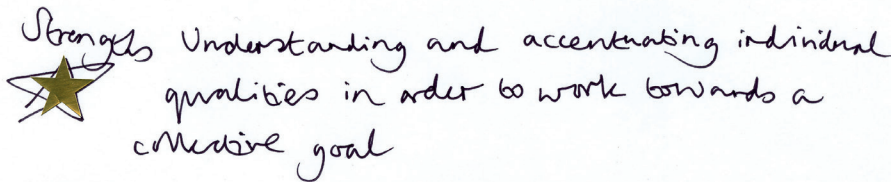 Strengths Understanding and accentuating individual
qualities in order to work towards a
collective goal